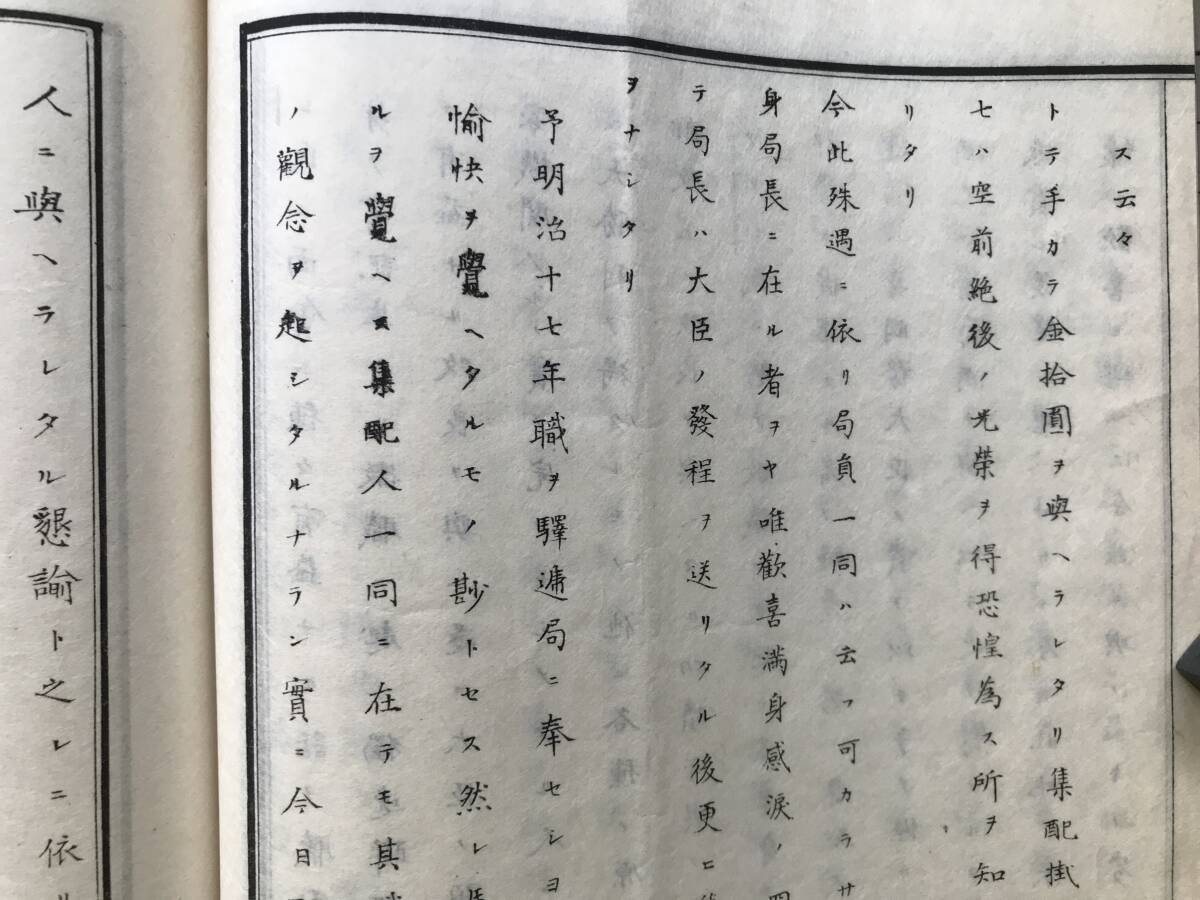 ス云々
トテ手カラ金拾圓ヲ與ヘラレタリ集配掛
七ハ空前絶後ノ光榮ヲ得恐惶為ス所ヲ知
リタリ
今此殊遇ニ依リ局員一同ハ云フ可カラサ
身局長ニ在ル者ヲヤ唯歡喜滿身感涙ノ
テ局長ハ大臣ノ發程ヲ送リタル後更ニ
ヲナシタリ
予明治十七年職ヲ驛遞局ニ奉セシヨ
愉快ヲ覺ヘタルモノ尠トセス然レ
ルヲ覺ヘ集配人一同ニ在テモ其
ノ觀念ヲ起シタルナラン實ニ今日
人ニ與ヘラレタル懇諭ト之レニ依